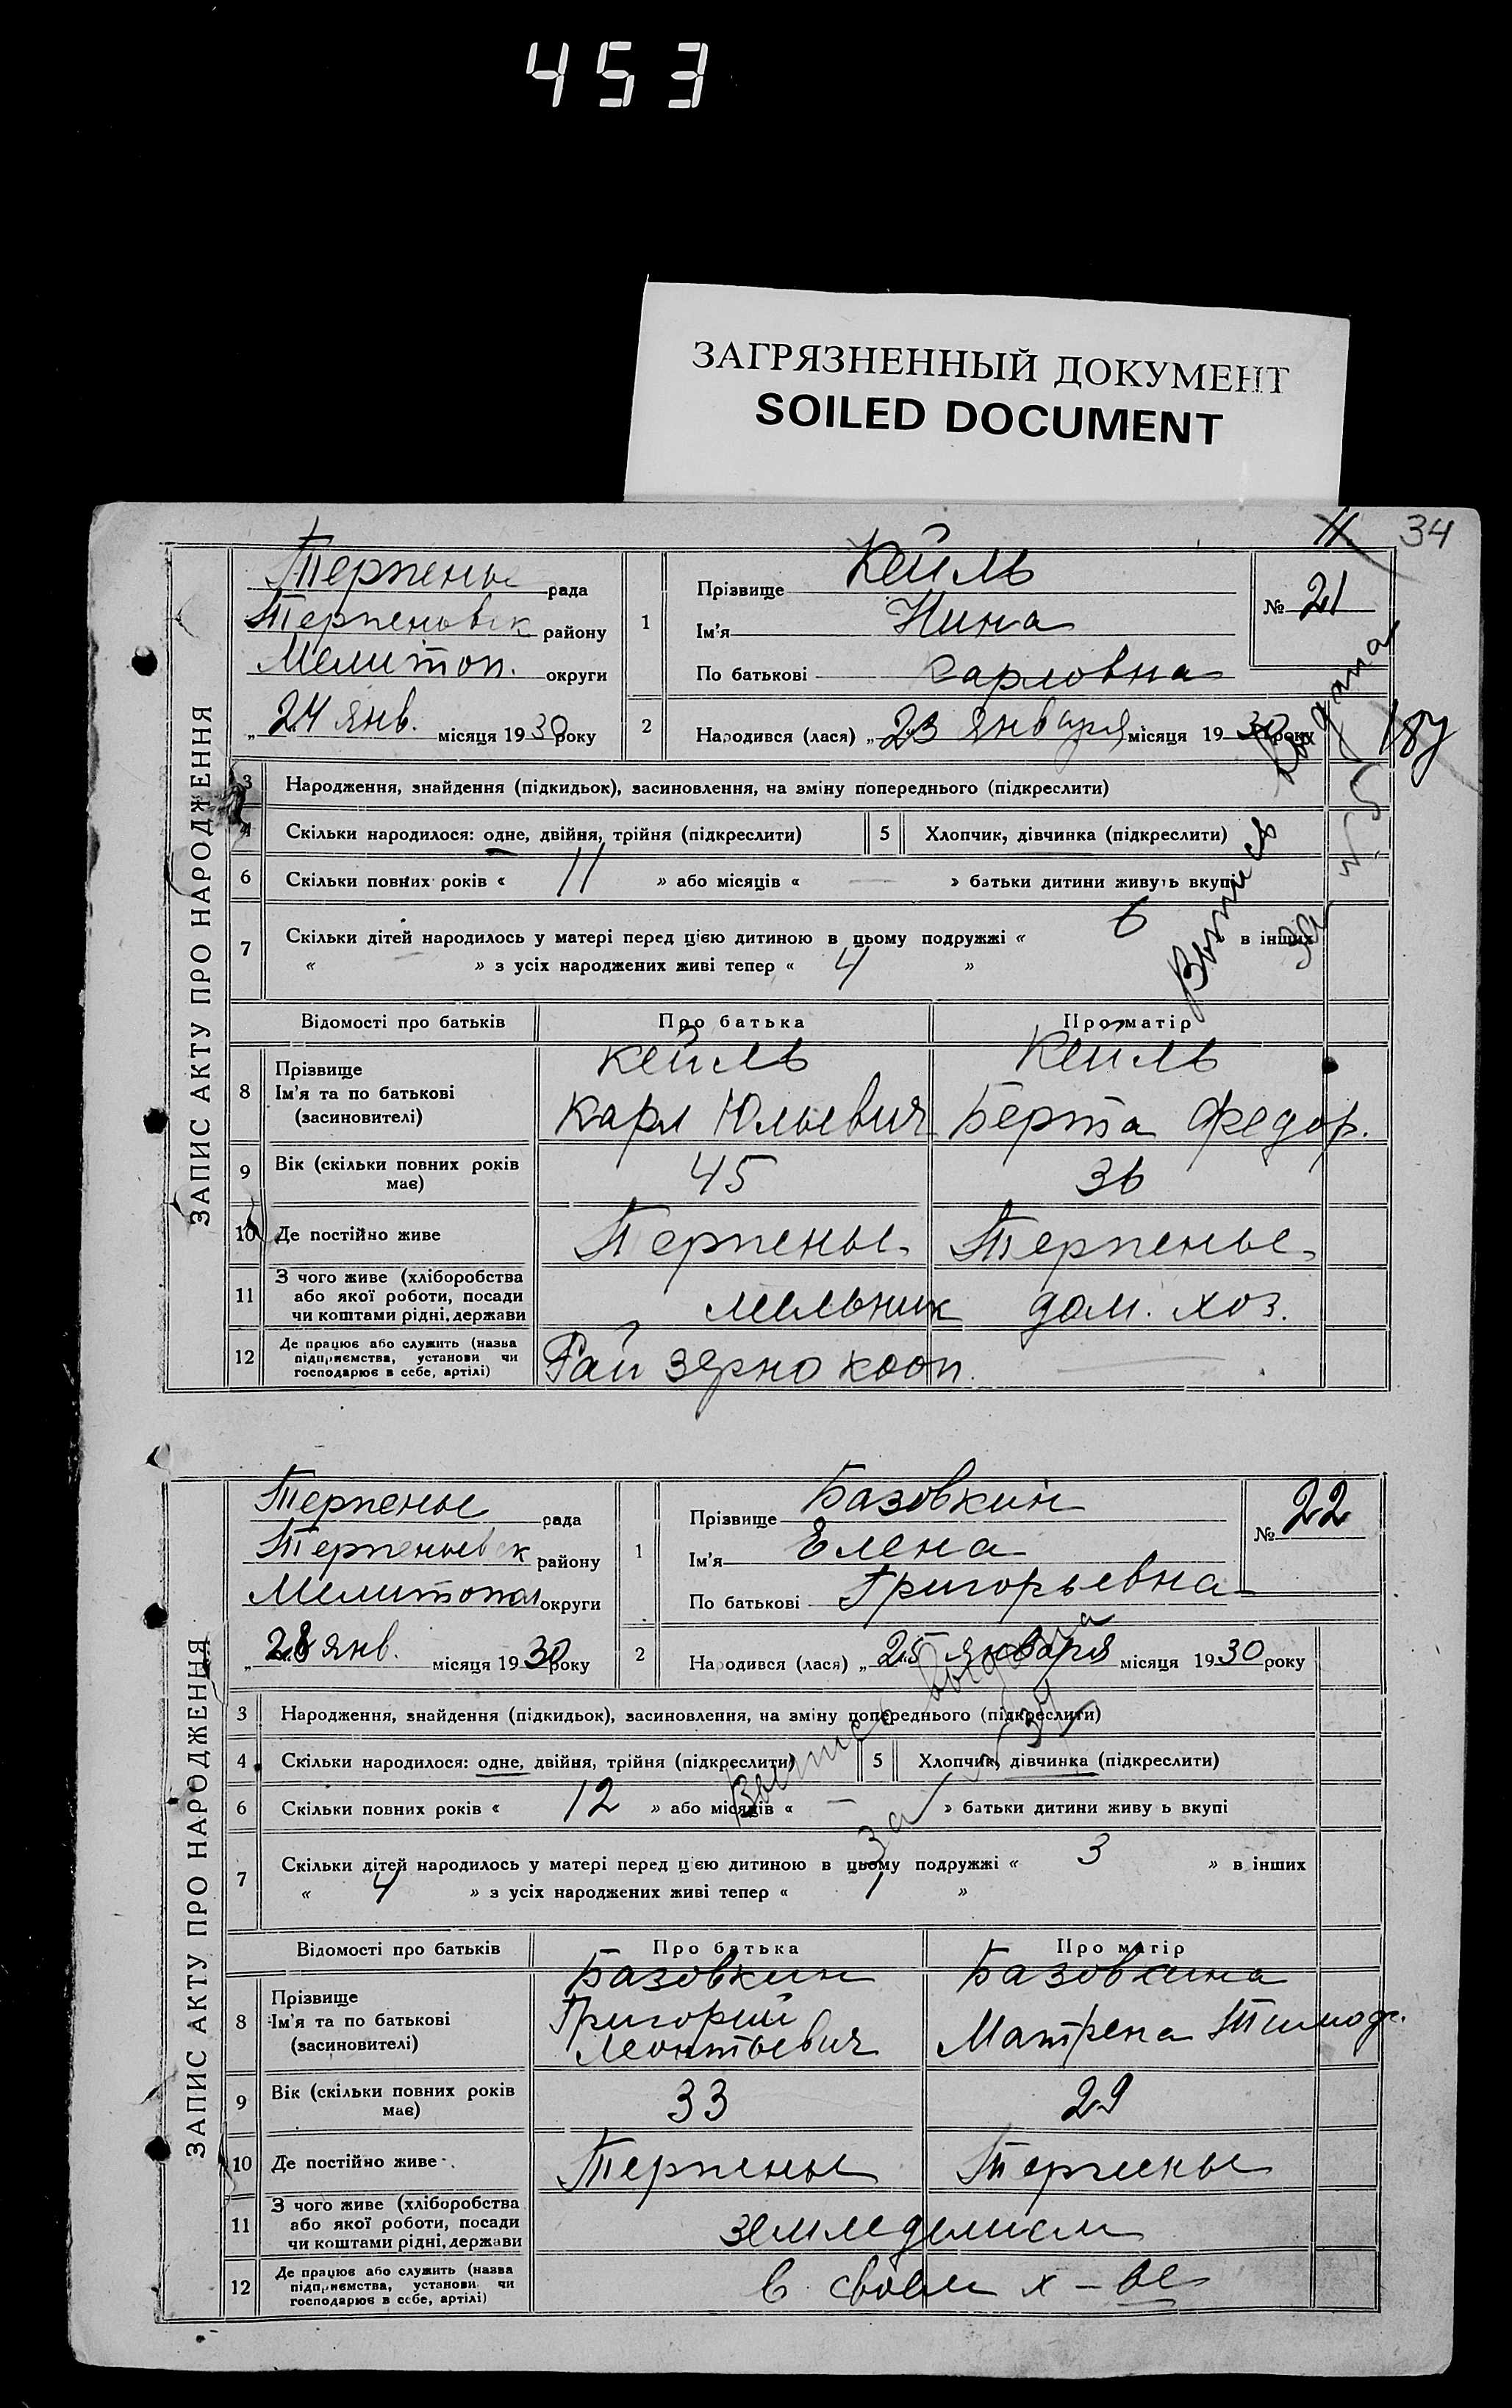 453
ЗАГРЯЗНЕННЫЙ ДОКУМЕНТ
SOILED DOCUMENT
11 34
ЗАПИС АКТУ ПРО НАРОДЖЕННЯ
Терпенье рада
Терпеньевск району
Мелитоп. округи
„ 24 янв. місяця 1930 року
1 Прізвище Кейль
Ім'я Нина
По батькові Карловна
№ 21
2 Народився (лася) „ 23 января місяця 1930 року
3 Народження, знайдення (підкидьок), засиновлення, на зміну попереднього (підкреслити)
4 Скільки народилося: одне, двійня, трійня (підкреслити) 5 Хлопчик, дівчинка (підкреслити)
6 Скільки повних років « 11 » або місяців « — » батьки дитини живуть вкупі
7 Скільки дітей народилось у матері перед цією дитиною в цьому подружжі « 6 в інших
« — » з усіх народжених живі тепер « 4 »
Выпись выдана
за №
Відомості про батьків Про батька Про матір
8 Прізвище
Ім'я та по батькові
(засновителі)
Кейль
Карл Юльевич
Кейль
Берта Федор.
9 Вік (скільки повних років має) 45 36
10 Де постійно живе Терпенье Терпенье
11 З чого живе (хліборобства
або якої роботи, посади
чи коштами рідні, держави
мельник дом. хоз.
12 Де працює або служить (назва
підприємства, установи чи
господарює в себе, артілі)
Рай зерно кооп. —
ЗАПИС АКТУ ПРО НАРОДЖЕННЯ
Терпенье рада
Терпеньевск району
Мелитопол округи
„ 28 янв. місяця 1930 року
1 Прізвище Базовкин
Ім'я Елена
По батькові Григорьевна
№ 22
2 Народився (лася) „ 25 января місяця 1930 року
3 Народження, знайдення (підкидьок), засиновлення, на зміну попереднього (підкреслити)
4 Скільки народилося: одне, двійня, трійня (підкреслити) 5 Хлопчик, дівчинка (підкреслити)
6 Скільки повних років « 12 » або місяців « — » батьки дитини живу ь вкупі
7 Скільки дітей народилось у матері перед цією дитиною в цьому подружжі « 3 » в інших
« 4 » з усіх народжених живі тепер « 1 »
Выпись выдана
за №
Відомості про батьків Про батька Про матір
8 Прізвище
Ім'я та по батькові
(засиновителі)
Базовкин
Григорий
Леонтьевич
Базовкина
Матрена Тимоф.
9 Вік (скільки повних років має) 33 29
10 Де постійно живе Терпенье Терпенье
11 З чого живе (хліборобства
або якої роботи, посади
чи коштами рідні, держави
земледелием
12 Де працює або служить (назва
підприємства, установи чи
господарює в себе, артілі)
в своем х-ве